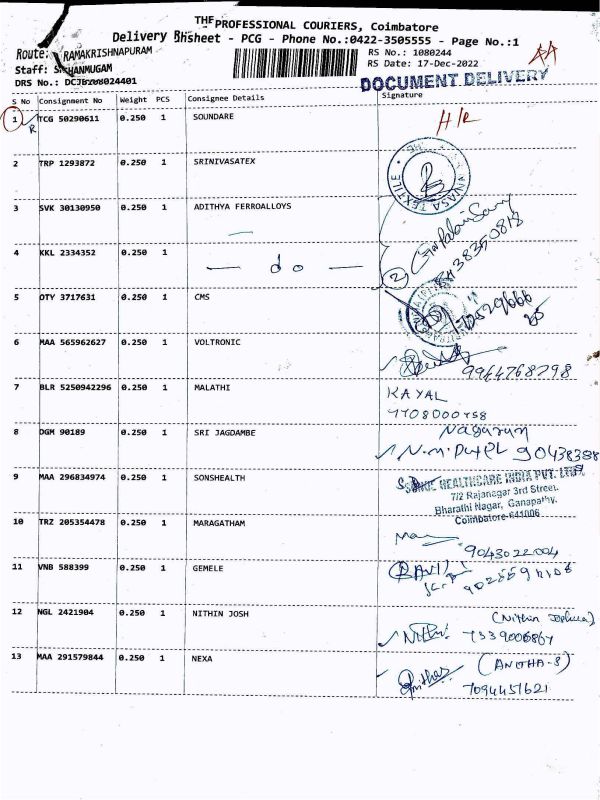 THE PROFESSIONAL COURIERS, Coimbatore
Delivery Runsheet - PCG - Phone No.:0422-3505555 - Page No.:1
Route: RAMAKRISHNAPURAM
RS No.: 1080244
Staff: SHANMUGAM
RS Date: 17-Dec-2022
DRS No.:
DOCUMENT DELIVERY
S No Consignment No Weight PCS Consignee Details Signature
1 TCG 50290611 0.250 1 SOUNDARE
2 TRP 1293872 0.250 1 SRINIVASATEX
3 SVK 30130950 0.250 1 ADITHYA FERROALLOYS
4 KKL 2334352 0.250 1 — do —
5 OTY 3717631 0.250 1 CMS
6 MAA 565962627 0.250 1 VOLTRONIC 9964768298
7 BLR 5250942296 0.250 1 MALATHI KAYAL
8 DGM 90189 0.250 1 SRI JAGDAMBE
9 MAA 296834974 0.250 1 SONSHEALTH HEALTHCARE INDIA PVT. LTD
7/2 Rajanagar 3rd Street,
Bharathi Nagar, Ganapathy,
Coimbatore-641006
10 TRZ 205354478 0.250 1 MARAGATHAM
9043022004
11 VNB 588399 0.250 1 GEMELE
12 NGL 2421904 0.250 1 NITHIN JOSH (Nithin Joshua)
7339006867
13 MAA 291579844 0.250 1 NEXA (ANITHA-S)
7094451621